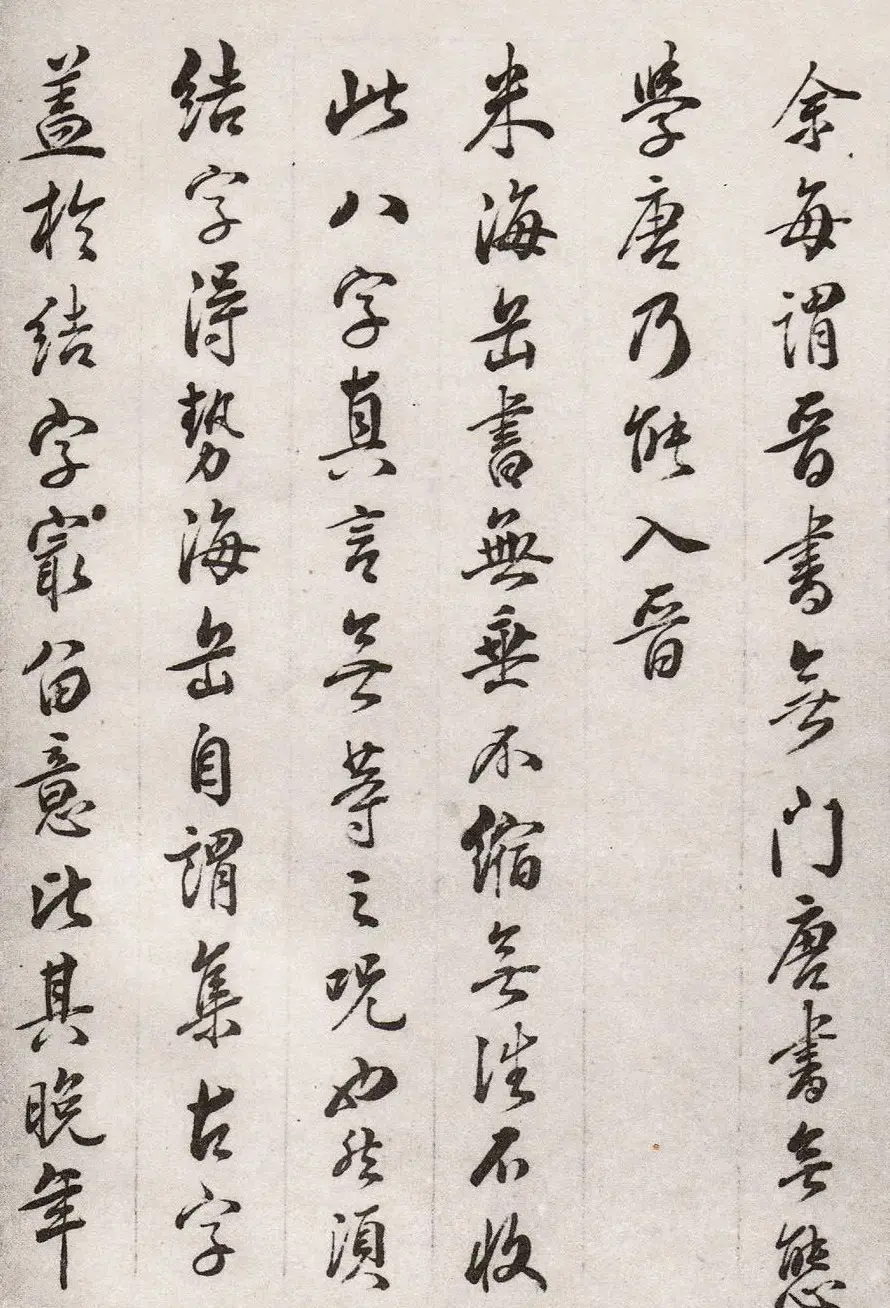 余每謂晋書無門唐書無態
學唐乃能入晋
米海岳書無垂不縮無往不收
此八字真言無等之呪也然須
結字得勢海岳自謂集古字
蓋於結字寂留意此其晚年